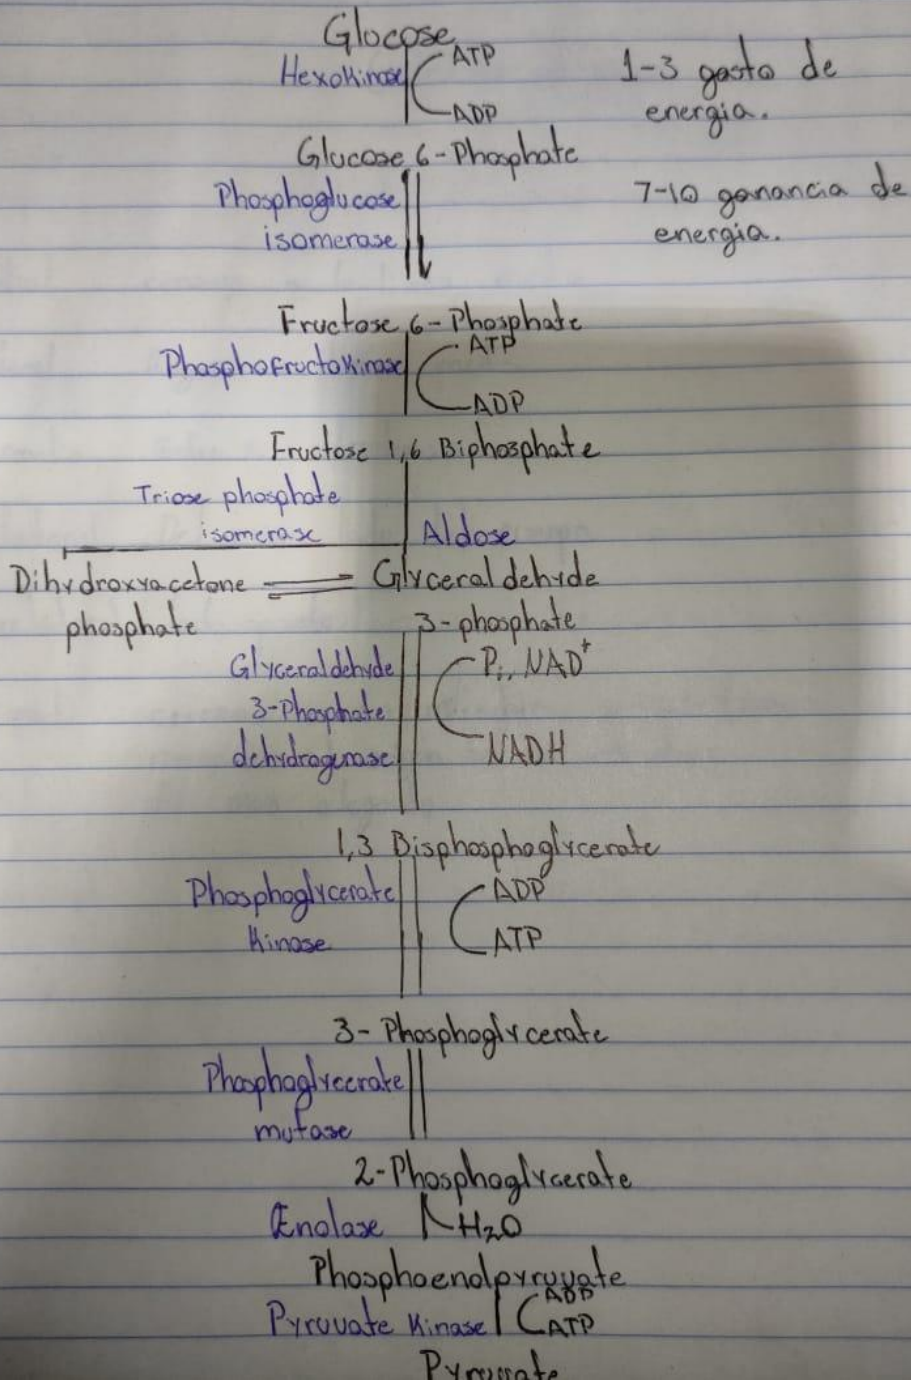 Glocose
Hexokinase
ATP
ADP
1-3 gasto de
energia.
Glucose 6-Phosphate
Phosphoglucose
isomerase
7-10 ganancia de
energia.
Fructose 6-Phosphate
Phosphofructokinase
ATP
ADP
Fructose 1,6 Biphosphate
Triose phosphate
isomerase
Aldose
Dihydroxyacetone
phosphate
Glyceraldehyde
3-phosphate
Glyceraldehyde
3-Phosphate
dehydrogenase
Pi, NAD+
NADH
1,3 Bisphosphoglycerate
Phosphoglycerate
Kinase
ADP
ATP
3-Phosphoglycerate
Phosphoglycerate
mutase
2-Phosphoglycerate
Enolase
H2O
Phosphoenolpyruvate
Pyruvate Kinase
ADP
ATP
Pyruvate